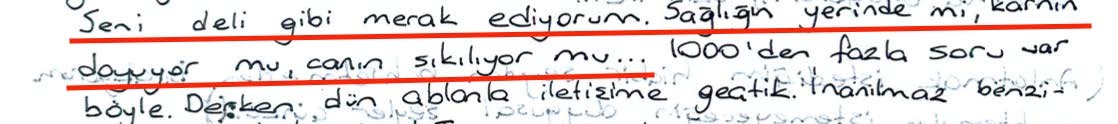 Seni deli gibi merak ediyorum. Sağlığın yerinde mi, karnın
doyuyor mu, canın sıkılıyor mu... 1000'den fazla soru var
böyle. Derken; dün ablanla iletişime geçtik. İnanılmaz benzi-